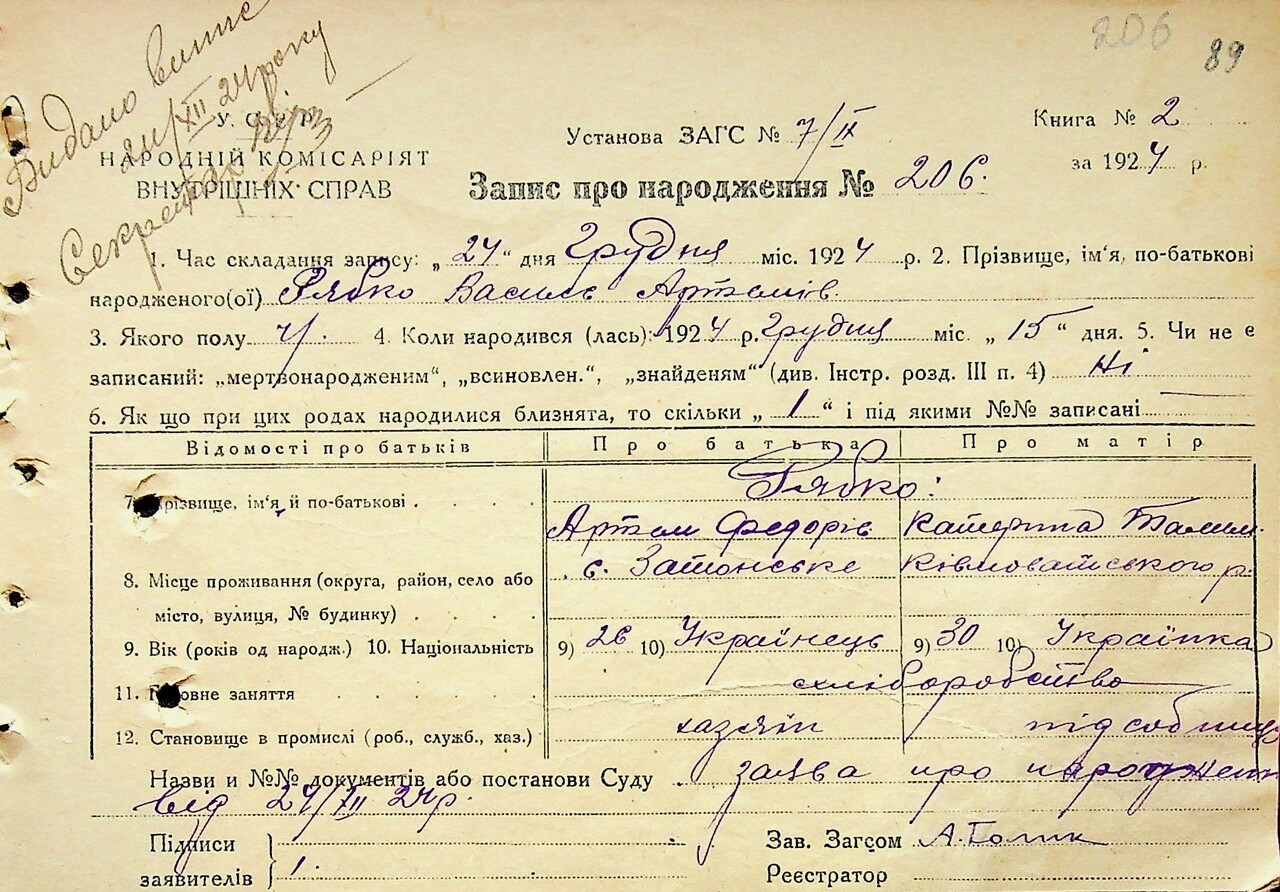 206
89
Видано випис
24/XII 24 року
Секретар
У. С. Р. Р.
НАРОДНІЙ КОМІСАРІЯТ
ВНУТРІШНІХ СПРАВ
Установа ЗАГС № 7/IX
Книга № 2
за 1924 р.
Запис про народження № 206.
1. Час складання запису: „ 24 “ дня Грудня міс. 1924 р. 2. Прізвище, ім'я, по-батькові
народженого(ої) Рябко Василь Артемів.
3. Якого полу ч. 4. Коли народився (лась): 1924 р. Грудня міс. „ 15 “ дня. 5. Чи не є
записаний: „мертвонародженим“, „всиновлен.“, „знайденям“ (див. Інстр. розд. III п. 4) Ні
6. Як що при цих родах народилися близнята, то скільки „ 1 “ і під якими №№ записані
Відомості про батьків Про батька Про матір
7. Прізвище, ім'я й по-батькові Рябко:
Артем Федорів Катерина
8. Місце проживання (округа, район, село або с. Затонське
місто, вулиця, № будинку)
9. Вік (років од народж.) 10. Національність 9) 26 10) Українець 9) 30 10) Українка
11. Головне заняття хліборобство
12. Становище в промислі (роб., служб., хаз.) хазяїн
Назви и №№ документів або постанови Суду заява про народження
від 24/XII 24 р.
Підписи
заявителів 1.
Зав. Загсом А. Голик
Реєстратор